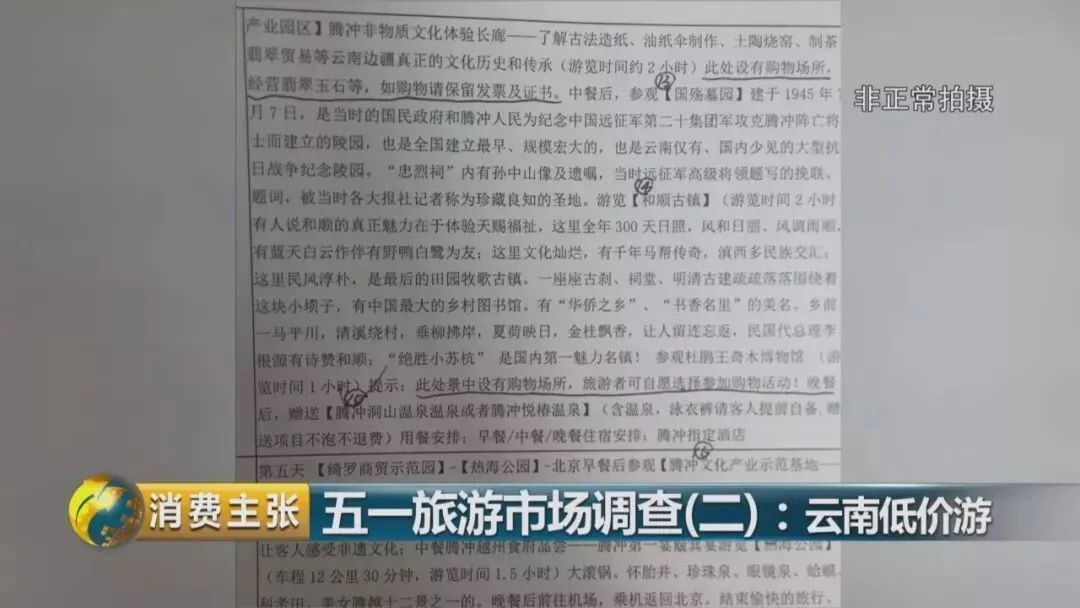 产业园区】腾冲非物质文化体验长廊——了解古法造纸、油纸伞制作、土陶烧窑、制茶
翡翠贸易等云南边疆真正的文化历史和传承（游览时间约2小时）此处设有购物场所，
经营翡翠玉石等，如购物请保留发票及证书。中餐后，参观【国殇墓园】建于1945年7
⑬
非正常拍摄
月7日，是当时的国民政府和腾冲人民为纪念中国远征军第二十集团军攻克腾冲阵亡将
士而建立的陵园，也是全国建立最早、规模宏大的，也是云南仅有、国内少见的大型抗
日战争纪念陵园。“忠烈祠”内有孙中山像及遗嘱，当时远征军高级将领题写的挽联、
⑭
题词，被当时各大报社记者称为珍藏良知的圣地。游览【和顺古镇】（游览时间2小时
有人说和顺的真正魅力在于体验天赐福祉，这里全年300天日照，风和日丽、风调雨顺，
有蓝天白云作伴有野鸭白鹭为友；这里文化灿烂，有千年马帮传奇，滇西多民族交汇；
这里民风淳朴，是最后的田园牧歌古镇。一座座古刹、祠堂、明清古建疏疏落落围绕着
这块小坝子，有中国最大的乡村图书馆。有“华侨之乡”、“书香名里”的美名。乡前
一马平川，清溪绕村，垂柳拂岸，夏荷映日，金桂飘香，让人留连忘返，民国代总理李
根源有诗赞和顺：“绝胜小苏杭”是国内第一魅力名镇！参观杜鹃王奇木博物馆（游
览时间1小时）提示：此处景中设有购物场所，旅游者可自愿选择参加购物活动！晚餐
⑮
后，赠送【腾冲洞山温泉温泉或者腾冲悦椿温泉】（含温泉，泳衣裤请客人提前自备，赠
送项目不泡不退费）用餐安排：早餐/中餐/晚餐住宿安排：腾冲指定酒店
⑯
第五天 【绮罗商贸示范园】-【热海公园】-北京早餐后参观【腾冲文化产业示范基地—
消费主张
五一旅游市场调查(二)：云南低价游
让客人感受非遗文化；中餐腾冲越州食府品尝——腾冲第一宴
游览【热海公园】
（车程12公里30分钟，游览时间1.5小时）大滚锅、怀胎井、珍珠泉、眼镜泉、蛤蟆
美女腾越十二景之一的。晚餐后前往机场，乘机返回北京。结束愉快的旅行。